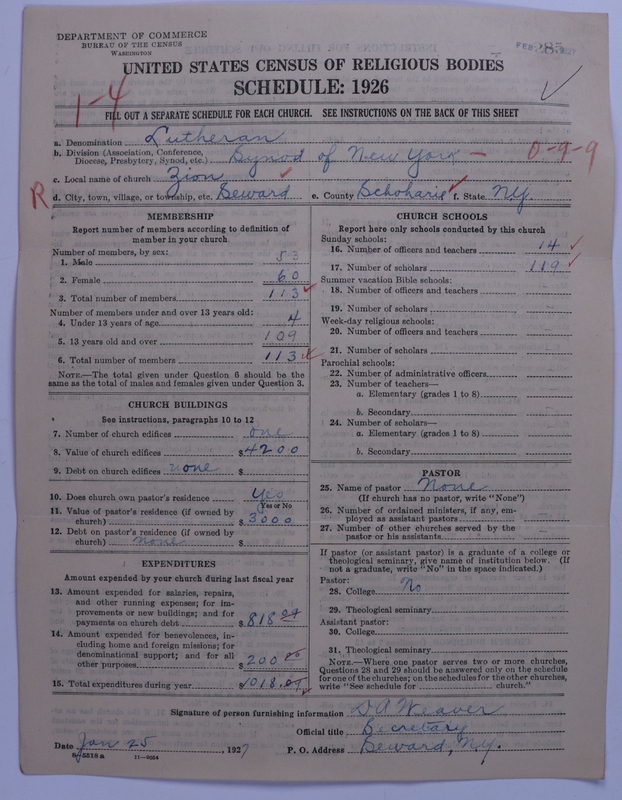 DEPARTMENT OF COMMERCE
BUREAU OF THE CENSUS
WASHINGTON
FEB 1927
285
UNITED STATES CENSUS OF RELIGIOUS BODIES
SCHEDULE: 1926
1-4
FILL OUT A SEPARATE SCHEDULE FOR EACH CHURCH. SEE INSTRUCTIONS ON THE BACK OF THIS SHEET
a. Denomination Lutheran
b. Division (Association, Conference,
Diocese, Presbytery, Synod, etc.) Synod of New York — 0-9-9
c. Local name of church Zion
R d. City, town, village, or township, etc. Seward e. County Schoharie f. State N.Y.
MEMBERSHIP
Report number of members according to definition of
member in your church
Number of members, by sex:
1. Male 53
2. Female 60
3. Total number of members 113
Number of members under and over 13 years old:
4. Under 13 years of age 4
5. 13 years old and over 109
6. Total number of members 113
NOTE.—The total given under Question 6 should be the
same as the total of males and females given under Question 3.
CHURCH BUILDINGS
See instructions, paragraphs 10 to 12
7. Number of church edifices one
8. Value of church edifices $4200
9. Debt on church edifices none $
10. Does church own pastor's residence Yes
(Yes or No)
11. Value of pastor's residence (if owned by
church) $3000
12. Debt on pastor's residence (if owned by
church) none $
EXPENDITURES
Amount expended by your church during last fiscal year
13. Amount expended for salaries, repairs,
and other running expenses; for im-
provements or new buildings; and for
payments on church debt $818.04
14. Amount expended for benevolences, in-
cluding home and foreign missions; for
denominational support; and for all
other purposes $200.00
15. Total expenditures during year $1018.04
CHURCH SCHOOLS
Report here only schools conducted by this church
Sunday schools:
16. Number of officers and teachers 14
17. Number of scholars 119
Summer vacation Bible schools:
18. Number of officers and teachers
19. Number of scholars
Week-day religious schools:
20. Number of officers and teachers
21. Number of scholars
Parochial schools:
22. Number of administrative officers
23. Number of teachers—
a. Elementary (grades 1 to 8)
b. Secondary
24. Number of scholars—
a. Elementary (grades 1 to 8)
b. Secondary
PASTOR
25. Name of pastor None
(If church has no pastor, write "None")
26. Number of ordained ministers, if any, em-
ployed as assistant pastors
27. Number of other churches served by the
pastor or his assistants
If pastor (or assistant pastor) is a graduate of a college or
theological seminary, give name of institution below. (If
not a graduate, write "No" in the space indicated.)
Pastor:
28. College No
29. Theological seminary
Assistant pastor:
30. College
31. Theological seminary
NOTE.—Where one pastor serves two or more churches,
Questions 28 and 29 should be answered only on the schedule
for one of the churches; on the schedules for the other churches,
write "See schedule for church."
Signature of person furnishing information D A Weaver
Official title Secretary
Date Jan 25, 1927 P. O. Address Seward, N.Y.
8-5518a 11-9054